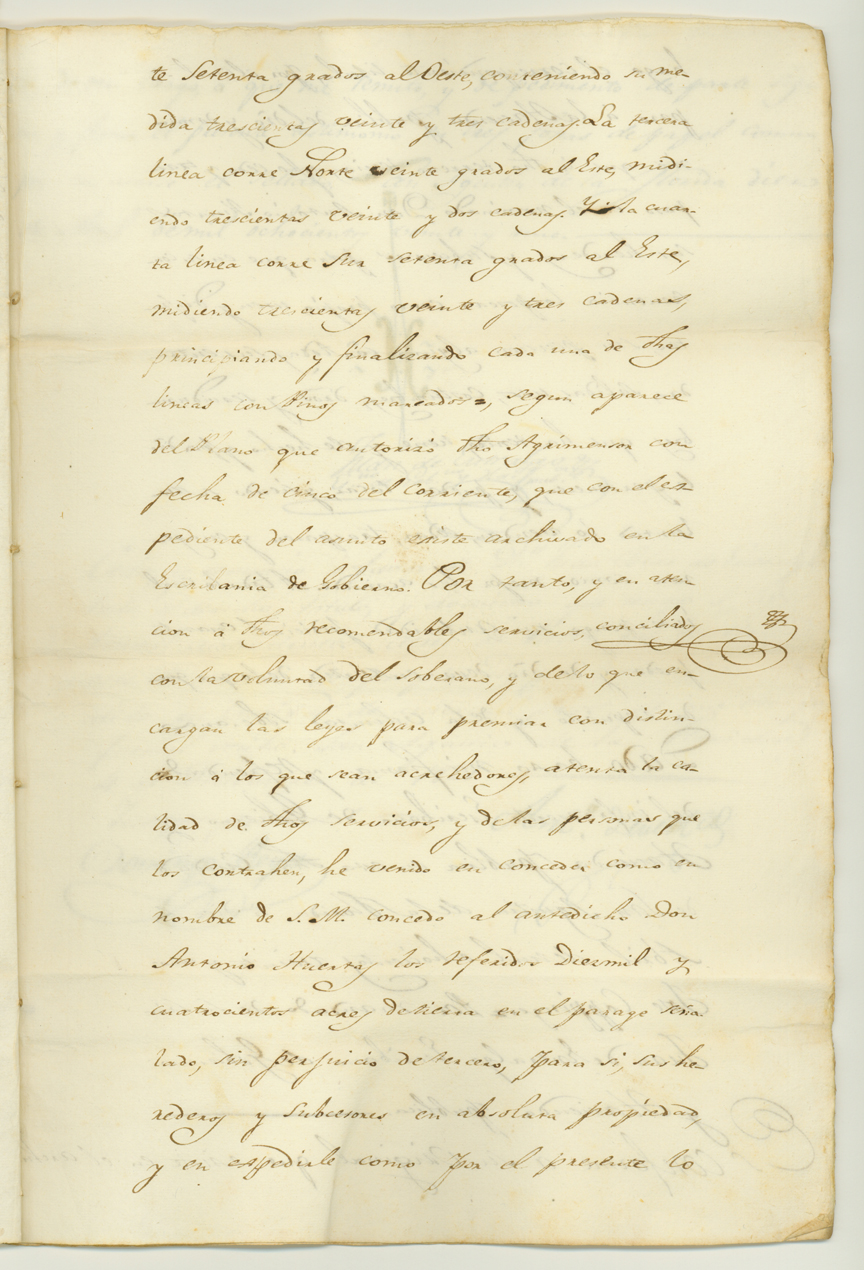 te Setenta grados al Oeste, conteniendo su me-
dida trescientas veinte y tres cadenas. La tercera
linea corre Norte veinte grados al Este, midi-
endo trescientas veinte y dos cadenas. Y la cuar-
ta linea corre Sur setenta grados al Este,
midiendo trescientas veinte y tres cadenas,
principiando y finalizando cada una de dhas
lineas con Pinos marcados =, segun aparece
del Plano que autorizó dho Agrimensor con
fecha de cinco del corriente, que con el ex-
pediente del asunto existe archivado en la
Escribania de Gobierno. Por tanto, y en aten
cion á dhos recomendables servicios, conciliados
con la voluntad del Soberano, y de lo que en-
cargan las leyes para premiar con distin-
cion á los que sean acrehedores, atenta la ca-
lidad de dhos servicios, y de las personas que
los contrahen, he venido en conceder como en
nombre de S. M. concedo al antedicho Don
Antonio Huertas los referidos Diezmil y
cuatrocientos acres de tierra en el parage seña-
lado, sin perjuicio de tercero, para si, sus he-
rederos y subcesores en absoluta propiedad,
y en espedirle como por el presente lo